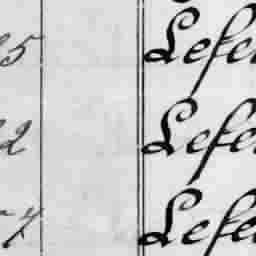 5 Lefe
2 Lefe
7 Lefe